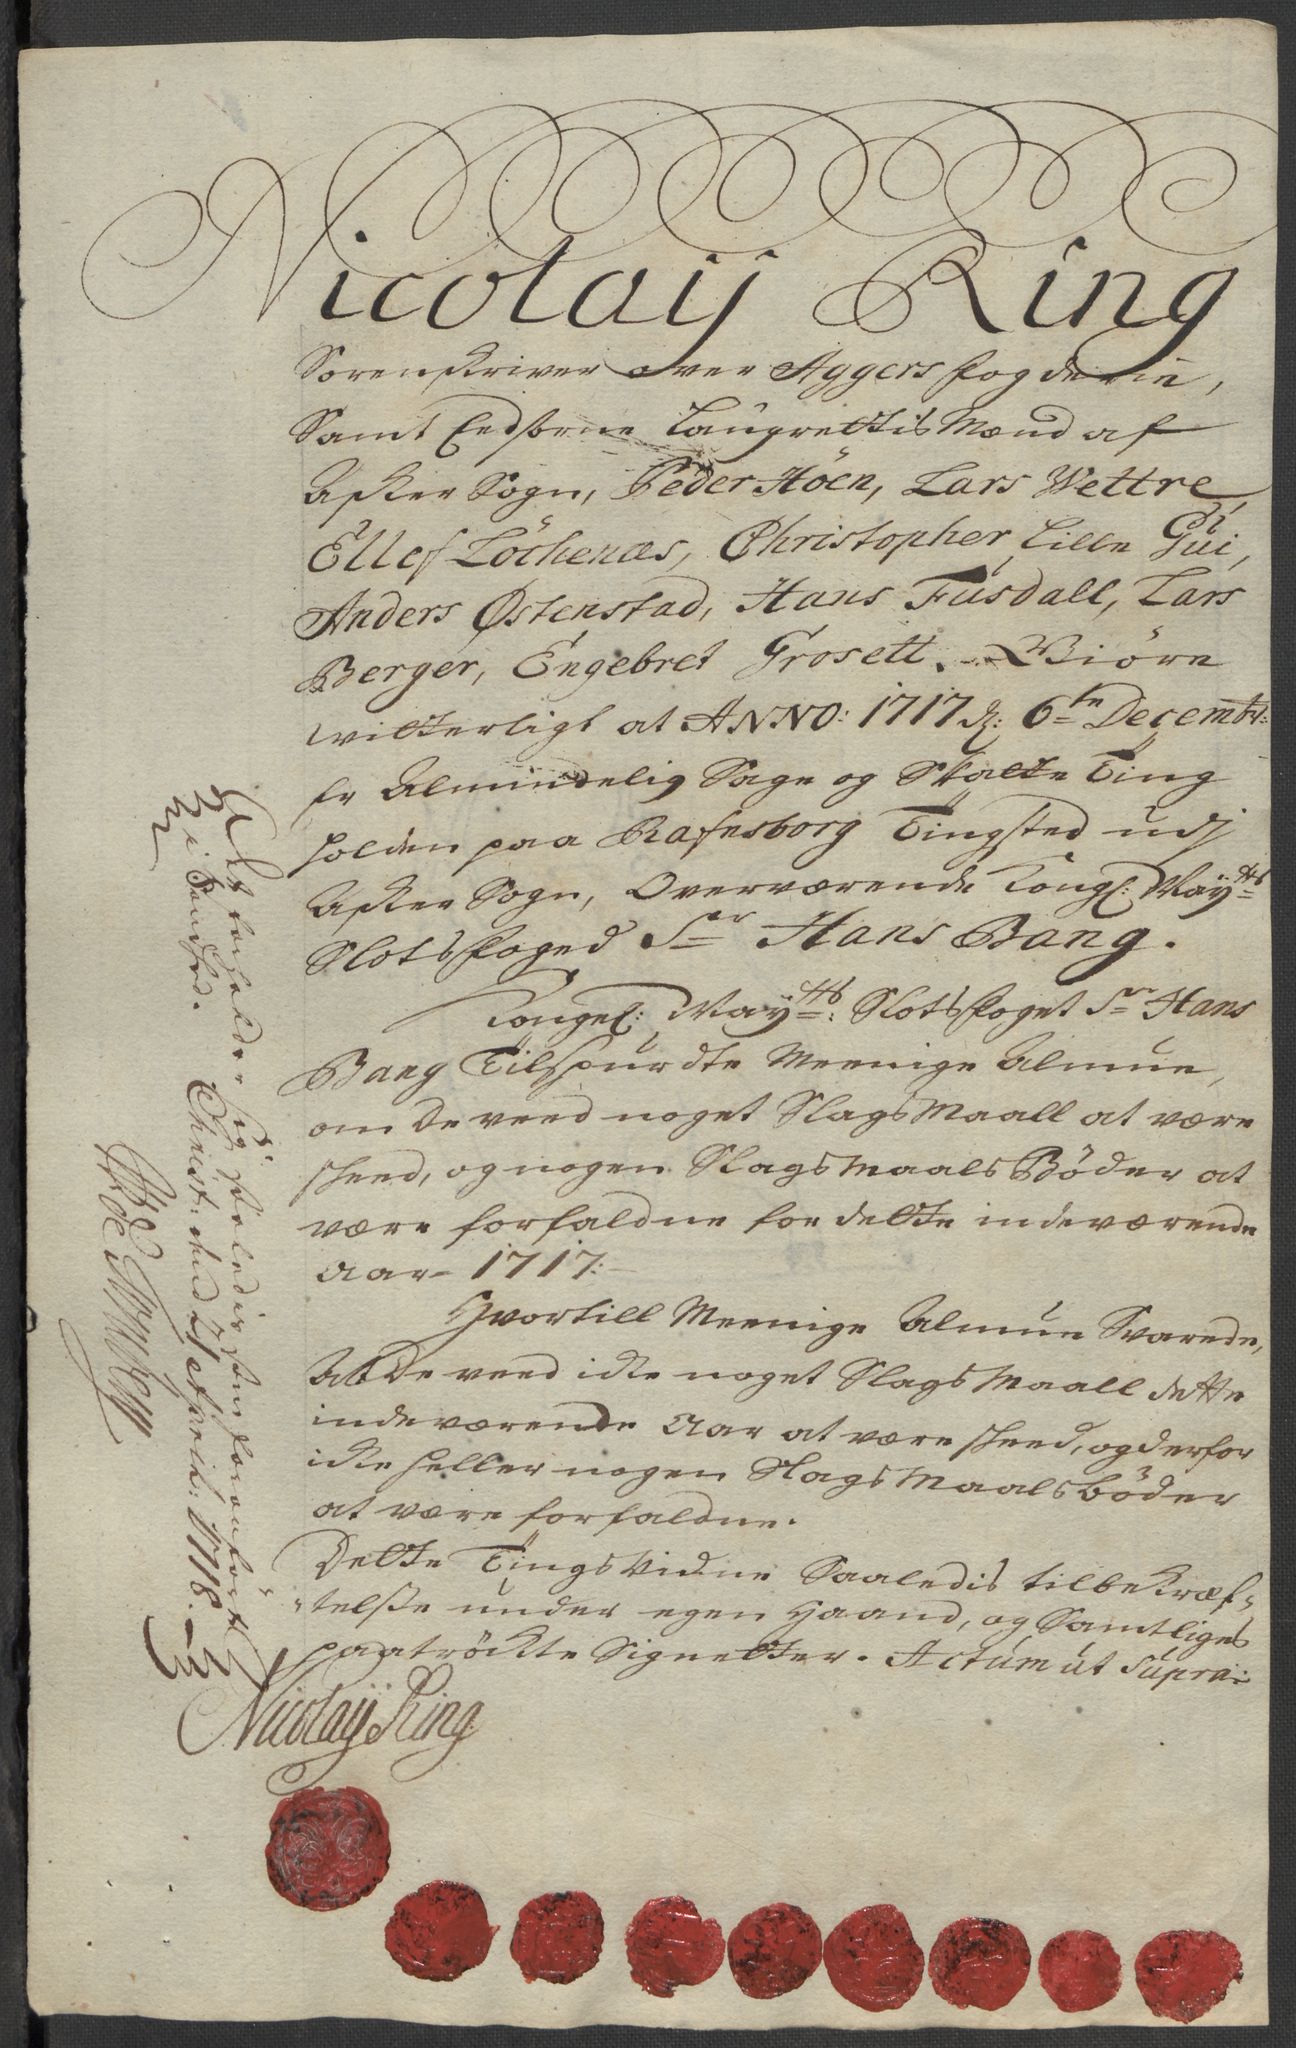 Nicolaij Ring
Sorenskriver over Aggers fogderie,
Samt Eedsorne Laugrettis Mænd af
Asker Sogn, Peder Höen, Lars Wettre
Ellef Löchenæs, Christopher Lille Gui,
Anders Østenstad, Hans Fúsdall, Lars
Berger, Engebret Grosett. Giöre
witterligt at ANNO: 1717 d: 6te Decembr:
er Almindelig Sage og Skatte Ting
holden paa Rafnsborg Tingsted udj
Asker Sogn, Overværende Kongl: May:tts
Slotsfoged Sr Hans Bang.
Kongel: May:tts Slotsfoget Sr Hans
Bang Tilspurdte Meenige Almue,
om de veed noget Slagsmaall at være
skeed, og nogen Slagsmaals Bøder at
være forfaldne for dette indeværende
Aar 1717:
Hvortill Meenige Almue Svarede,
At De veed icke noget Slagsmaall dette
indeværende Aar at være skeed, og derfor
icke heller nogen Slagsmaalsbøder
at være forfaldne.
Dette Tingsvidne Saaledis til bekræf-
telse under egen Haand, og Samtliges
paatröckte Signetter. Actum ut Supra:
Nicolaij Ring
At saaledis
Christ: d 21 April: 1718.